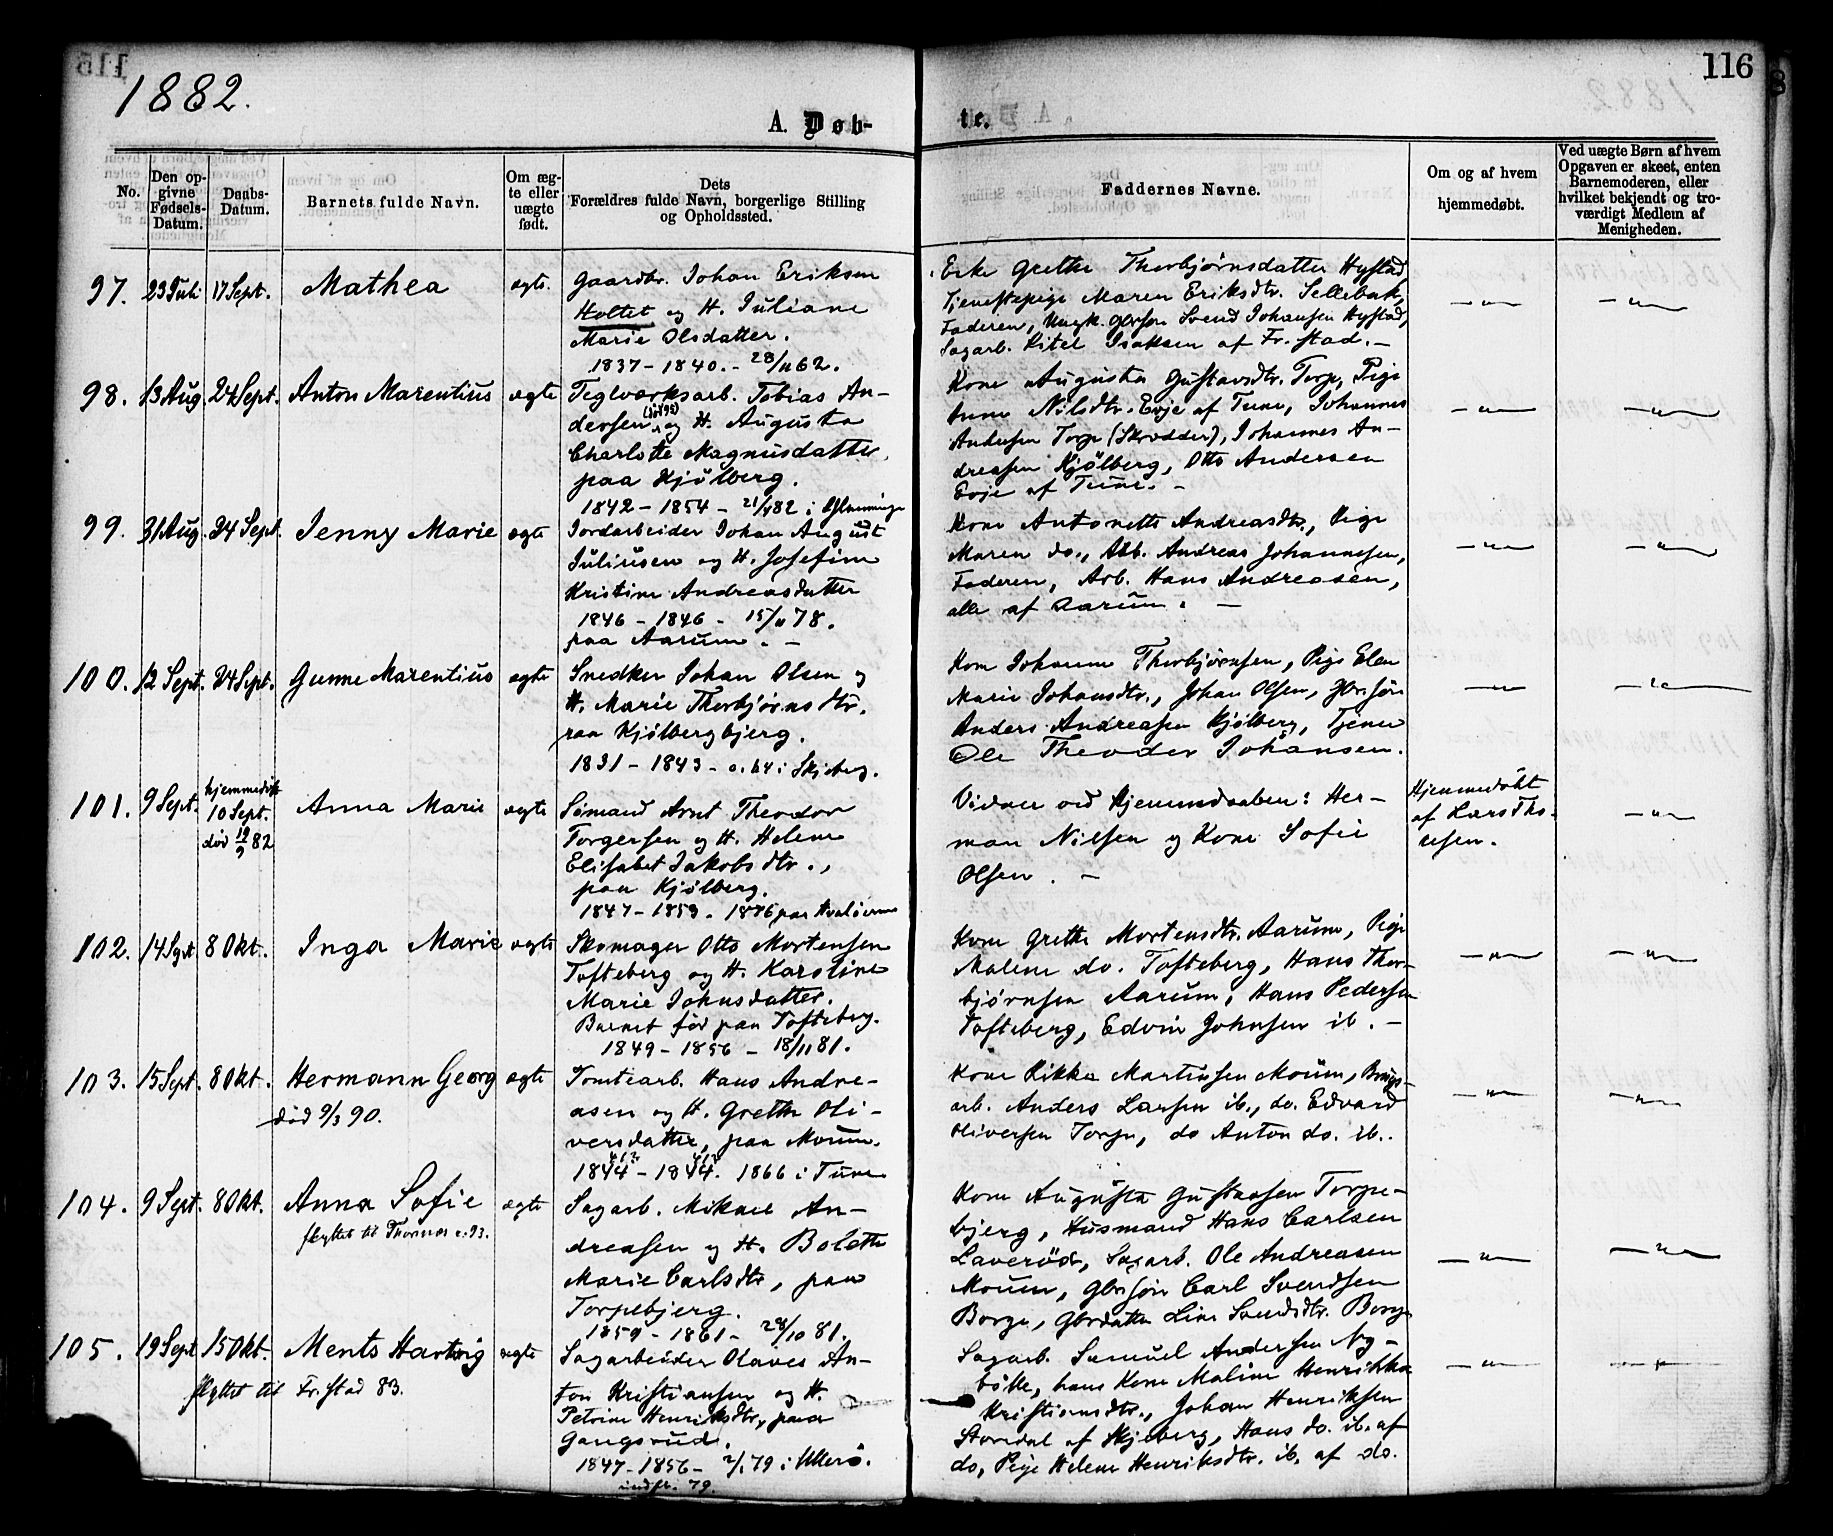 116
1882.
A. Døb-
te.
No.
Den op-
givne
Fødsels-
Datum.
Daabs-
Datum.
Barnets fulde Navn.
Om æg-
te eller
uægte
født.
Dets
Forældres fulde Navn, borgerlige Stilling
og Opholdssted.
Faddernes Navne.
Om og af hvem
hjemmedøbt.
Ved uægte Børn af hvem
Opgaven er skeet, enten
Barnemoderen, eller
hvilket bekjendt og tro-
værdigt Medlem af
Menigheden.
97. 23 Juli 17 Sept. Mathea ægte.
Gaardbr. Johan Eriksen
Holtet og H. Juliane
Marie Olsdatter.
1837 - 1840. - 28/11 62.
Enke Grethe Thorbjørnsdatter Hystad,
Tjenestepige Maren Eriksdtr. Sellebak,
Faderen, Ungk. Gbrsøn Svend Johansen Hystad,
Sagarb. Kitel Isaksen af Fr.stad. -
-"- -"-
98. 13 Aug. 24 Sept. Anton Marentius ægte
Teglværksarb. Tobias An-
dersen og H. Augusta
Charlotte Magnusdatter,
paa Kjølberg.
1842 - 1854 - 21/4 82 i Glemminge
Kone Augusta Gustavsdtr. Torp, Pige
Anne Nilsdtr. Evje af Tune, Johannes
Andersen Torp (Skrædder), Johannes An-
dreasen Kjølberg, Otto Andersen
Evje af Tune. -
-"- -"-
99. 31 Aug. 24 Sept. Jenny Marie ægte
Jordarbeider Johan August
Juliusen og H. Josefine
Kristine Andreasdatter
1846 - 1846 - 15/11 78.
paa Aarum. -
Kone Antonette Andreasdtr., Pige
Maren do., Arb. Andreas Johannesen,
Faderen, Arb. Hans Andreasen,
alle af Aarum. -
-"- -"-
100. 12 Sept. 24 Sept. Gunne Marentius ægte
Snedker Johan Olsen og
H. Marie Thorbjørnsdtr.
paa Kjølbergbjerg.
1831 - 1843 - o. 64 i Skjeberg.
Kone Johanne Thorbjørnsen, Pige Elen
Marie Johansdtr., Johan Olsen, Gbrsøn
Anders Andreasen Kjølberg, Tjener
Ole Theodor Johansen.
-"- -"-
101. 9 Sept. hjemmedøbt
10 Sept.
død 19/9 82
Anna Marie ægte
Sømand Arnt Theodor
Torgersen og H. Helene
Elisabet Jakobsdtr.,
paa Kjølberg.
1847 - 1853 - 1876 paa Hvaløerne
Vidner ved Hjemmedaaben: Her-
man Nielsen og Kone Sofie
Olsen. -
Hjemmedøbt
af Lars Tho-
resen.
-"-
102. 14 Sept. 8 Okt. Inga Marie ægte
Skomager Otto Mortensen
Tofteberg og H. Karoline
Marie Johnsdatter.
Barnet fød paa Tofteberg.
1849 - 1856 - 18/11 81.
Kone Grethe Mortensdtr. Aarum, Pige
Malene do. Tofteberg, Hans Thor-
bjørnsen Aarum, Hans Pedersen
Tofteberg, Edvin Johnsen ib. -
-"- -"-
103. 15 Sept. 8 Okt. Hermann Georg ægte
død 9/3 90.
Tomtearb. Hans Andre-
asen og H. Grethe Oli-
versdatter, paa Moum.
1844 - 1844. 1866 i Tune
Kone Rikke Martinsen Moum, Brugs-
arb. Anders Larsen ib., do. Edvard
Oliversen Torp, do Anton do. ib.
-"- -"-
104. 9 Sept. 8 Okt. Anna Sofie ægte
flyttet til 93.
Sagarb. Mikael An-
dreasen og H. Bolette
Marie Carlsdtr., paa
Torpebjerg.
1859 - 1861 - 28/10 81.
Kone Augusta Gustavsen Torpe-
bjerg, Husmand Hans Carlsen
Laverød, Sagarb. Ole Andreasen
Moum, Gbrsøn Carl Svendsen
Borge, Gbrdatter Line Svendsdtr. Borge
-"- -"-
105. 19 Sept 15 Okt. Ments Hartvig ægte
flyttet til Fr.stad 83.
Sagarbeider Olaves An-
ton Kristiansen og H.
Petrine Henriksdtr., paa
Gangsrud.
1847 - 1856 - 2/1 79 i Ullerø.
indfl. 79.
Sagarb. Samuel Andersen Ny-
bølle, hans Kone Maline Henrikka
Kristiansdtr., Johan Henriksen
Storedal af Skjeberg, Hans do. ib. af
do, Pige Helene Henriksdtr. ib. af do.
-"- -"-